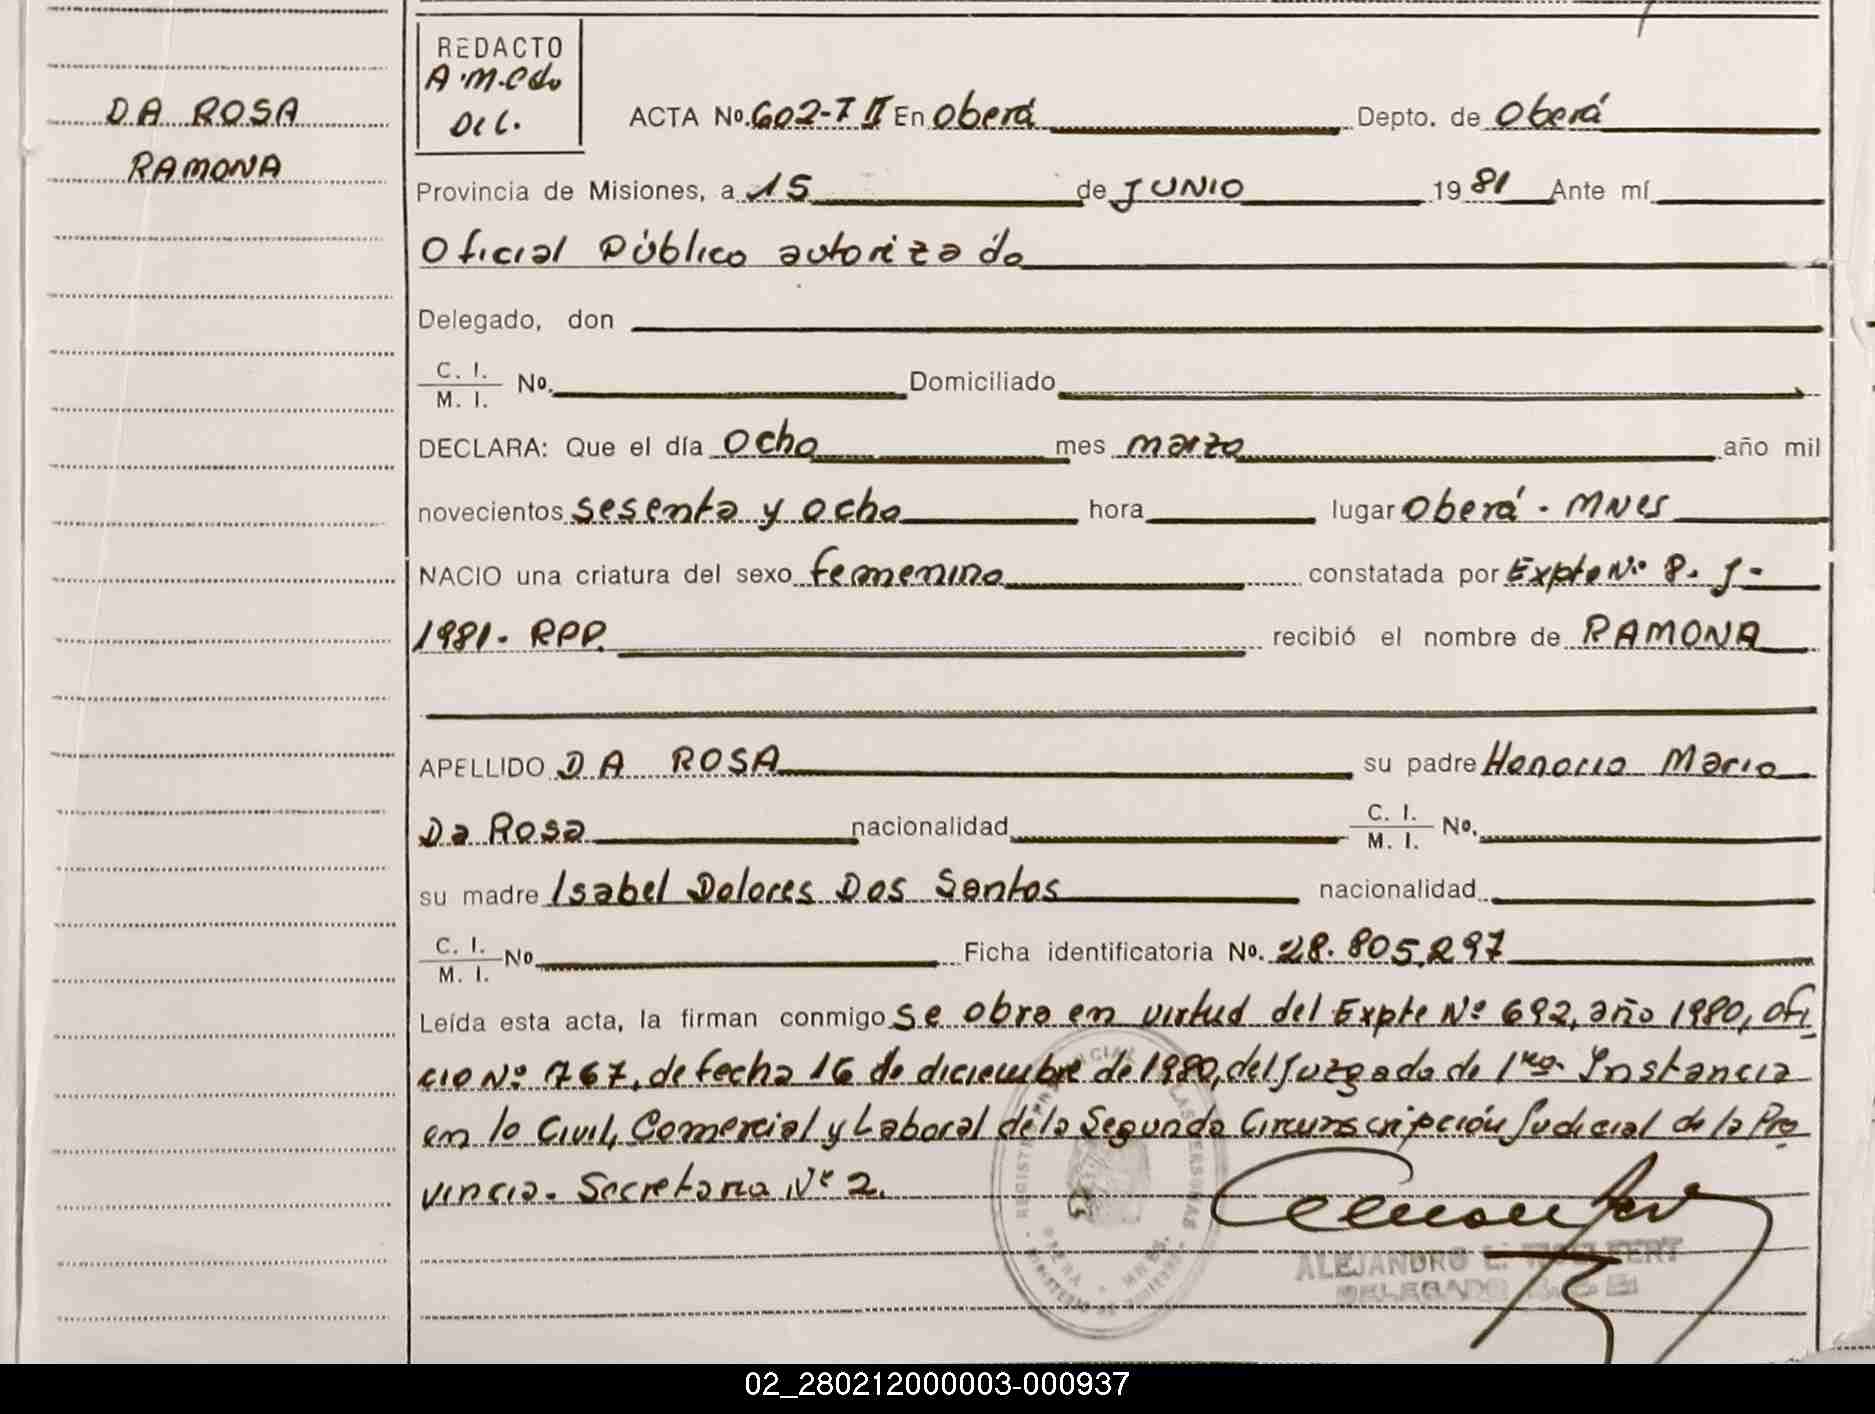 DA ROSA
RAMONA
REDACTO
A.M.Cdo
Del.
ACTA No. 602-T II En Oberá Depto. de Oberá
Provincia de Misiones, a 15 de JUNIO 19 81 Ante mí
Oficial Público autorizado
Delegado, don
C. I.
M. I. No. Domiciliado
DECLARA: Que el día Ocho mes marzo año mil
novecientos sesenta y ocho hora lugar Oberá - MNes
NACIO una criatura del sexo femenino constatada por Expte Nº 8. J-
1981- RPP. recibió el nombre de RAMONA
APELLIDO DA ROSA su padre Honorio Mario
Da Rosa nacionalidad C. I.
M. I. No.
su madre Isabel Dolores Dos Santos nacionalidad
C. I.
M. I. No Ficha identificatoria No. 28.805.297
Leída esta acta, la firman conmigo se obra en virtud del Expte Nº 692, año 1980, Ofi
cio Nº 767, de fecha 16 de diciembre de 1980, del Juzgado de 1ra. Instancia
en lo Civil, Comercial y Laboral de la Segunda Circunscripción Judicial de la Pro
vincia. Secretaria Nº 2.
REGISTRO PROVINCIAL DE LAS PERSONAS
OBERA - MNES.
ALEJANDRO L.
DELEGADO
02_280212000003-000937